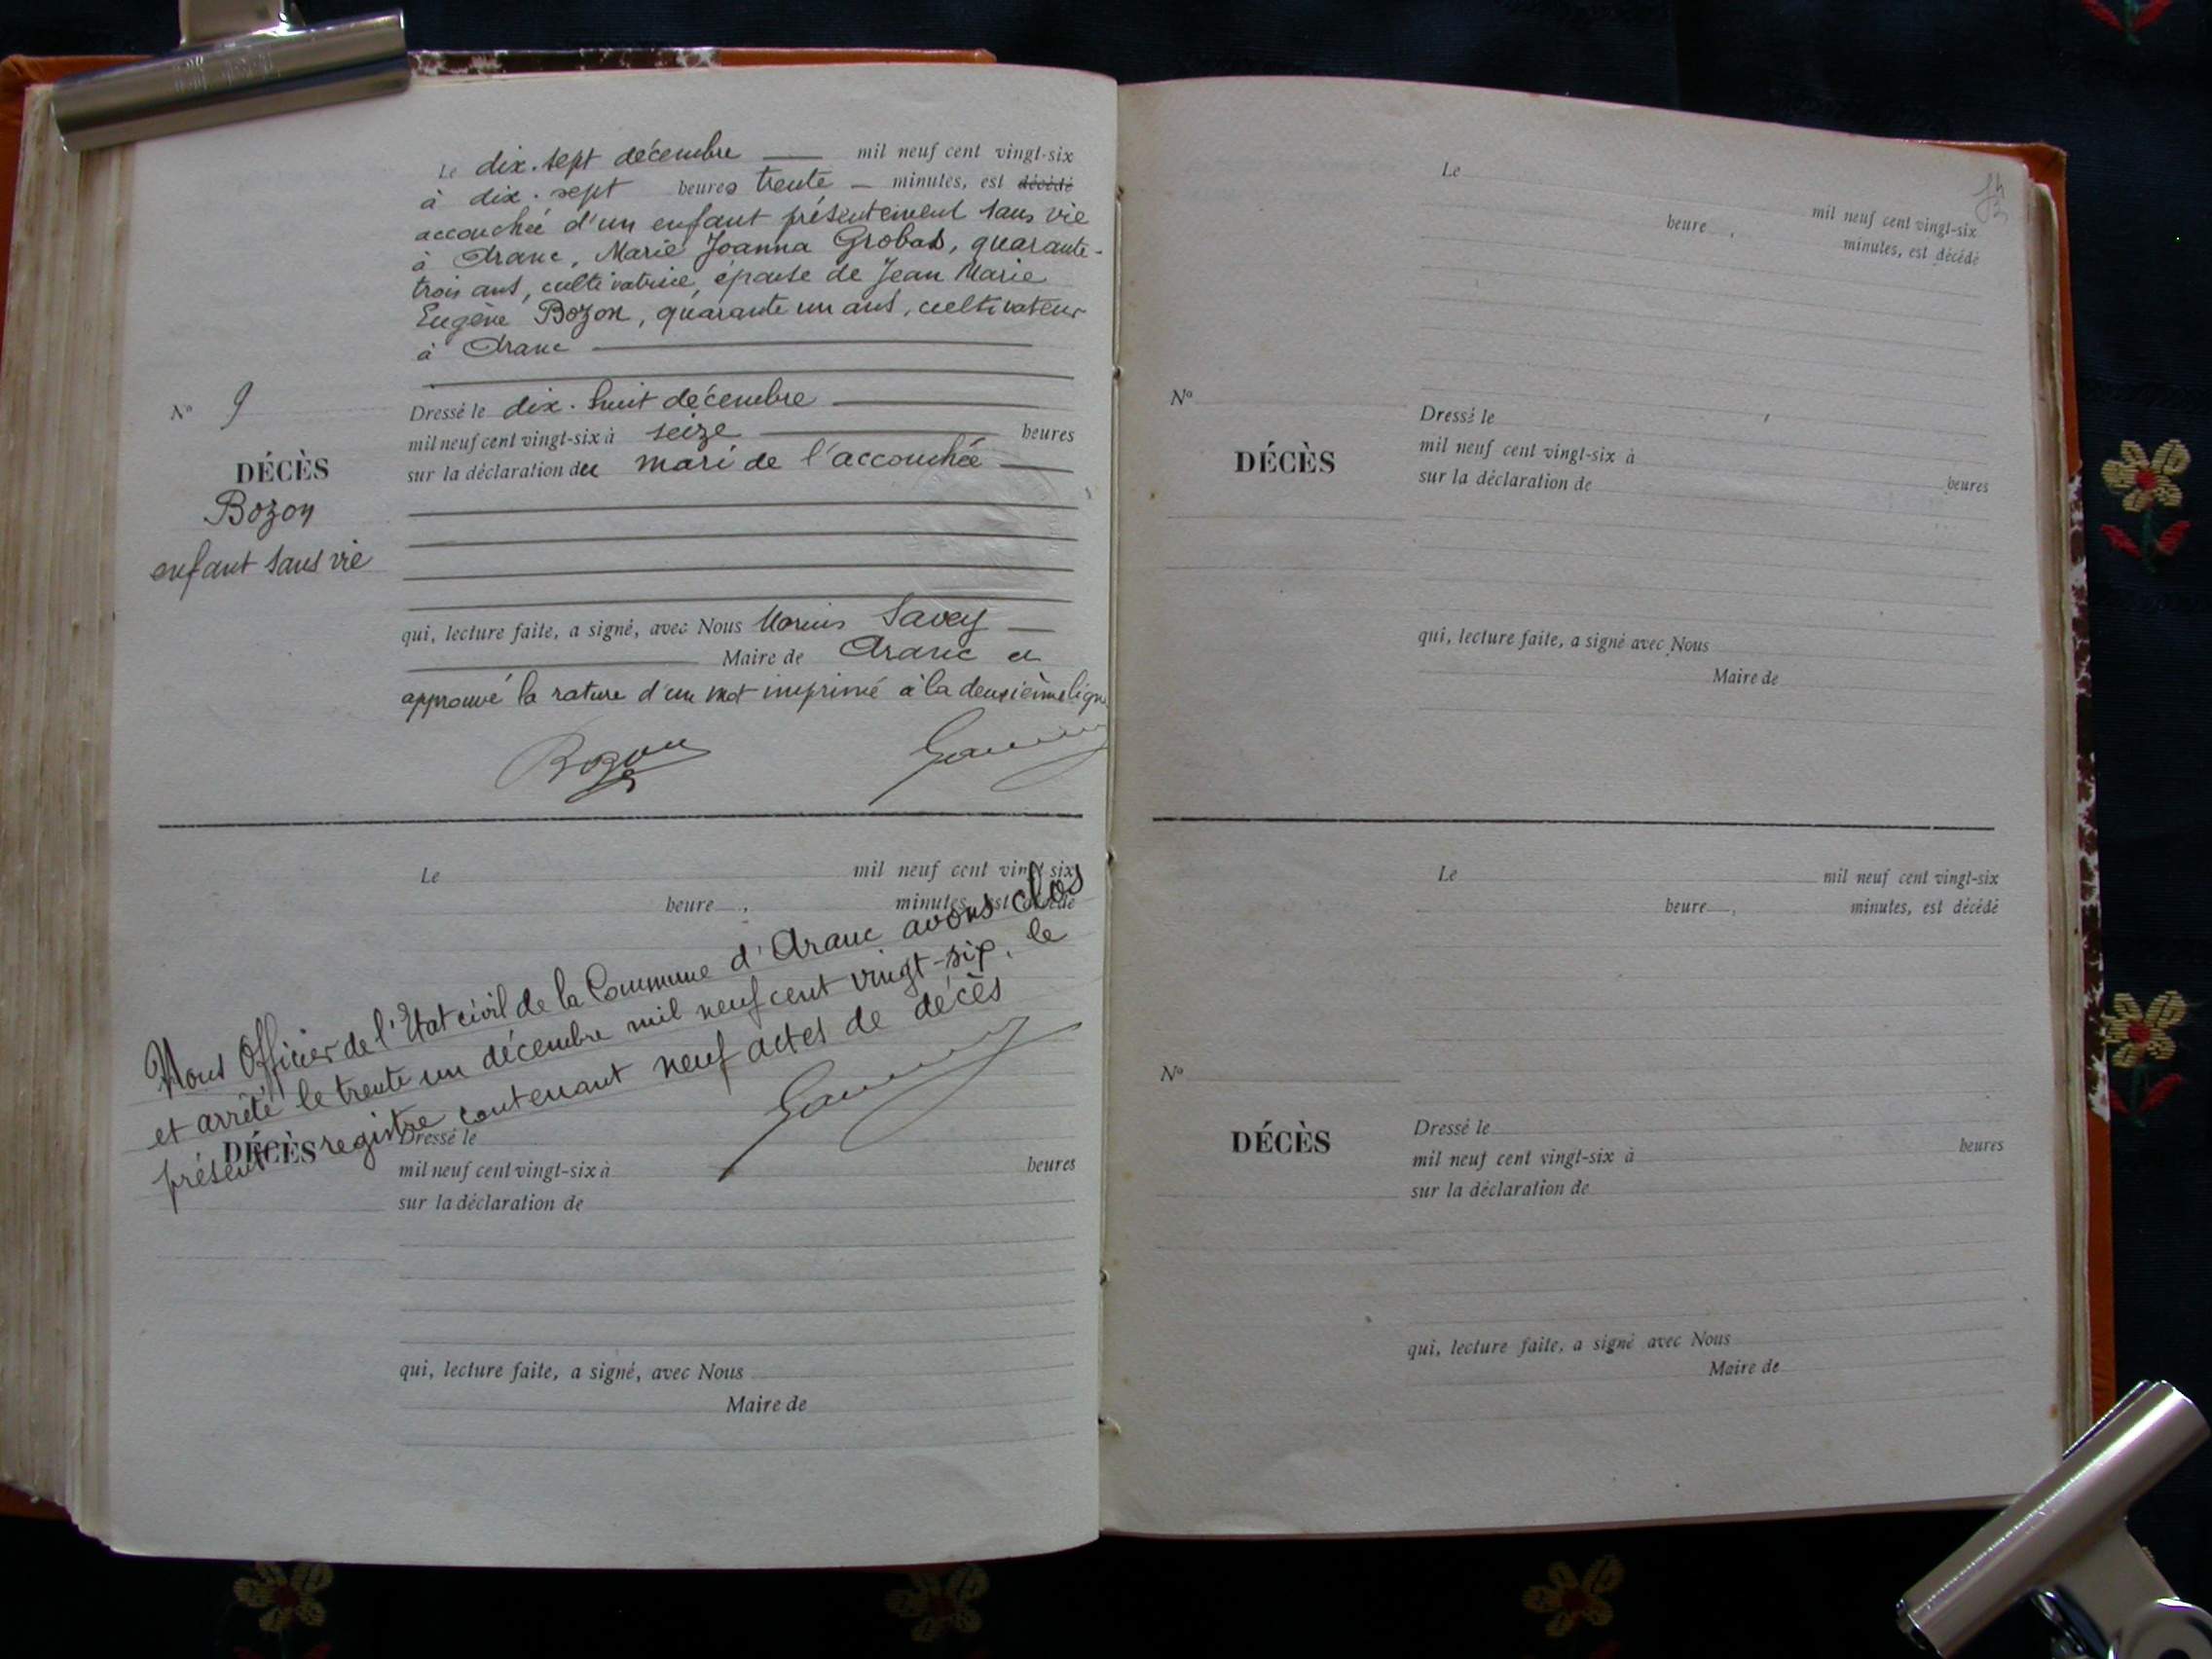 Le dix-sept décembre — mil neuf cent vingt-six
à dix-sept heures trente — minutes, est décédé
accouchée d'un enfant présentement sans vie
à Aranc, Marie Joanna Grobas, quarante-
trois ans, cultivatrice, épouse de Jean Marie
Eugène Bozon, quarante un ans, cultivateur
à Aranc
N° 9
DÉCÈS
Bozon
enfant sans vie
Dressé le dix-huit décembre
mil neuf cent vingt-six à seize heures
sur la déclaration du mari de l'accouchée
qui, lecture faite, a signé, avec Nous Marius Savey
Maire de Aranc et
approuvé la rature d'un mot imprimé à la deuxième ligne
Bozon
Le mil neuf cent vingt-six
heure , minutes, est décédé
Nous Officier de l'Etat civil de la Commune d'Aranc avons clos
et arrêté le trente un décembre mil neuf cent vingt-six, le
présent registre contenant neuf actes de décès
DÉCÈS
Dressé le
mil neuf cent vingt-six à heures
sur la déclaration de
qui, lecture faite, a signé, avec Nous
Maire de
Le mil neuf cent vingt-six
heure , minutes, est décédé
N°
DÉCÈS
Dressé le
mil neuf cent vingt-six à heures
sur la déclaration de
qui, lecture faite, a signé avec Nous
Maire de
Le mil neuf cent vingt-six
heure , minutes, est décédé
N°
DÉCÈS
Dressé le
mil neuf cent vingt-six à heures
sur la déclaration de
qui, lecture faite, a signé avec Nous
Maire de